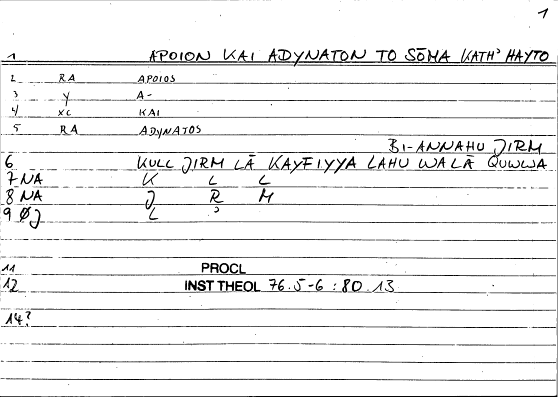 1
1 APOION KAI ADYNATON TO SŌMA KATH' HAYTO
2 RA APOIOS
3 Y A-
4 XC KAI
5 RA ADYNATOS
BI-ANNAHU JIRM
6 KULL JIRM LĀ KAYFIYYA LAHU WALĀ QUWWA
7 NA K L L
8 NA J R M
9 ØJ L ʾ
11 PROCL
12 INST THEOL 76.5-6 : 80.13
14?